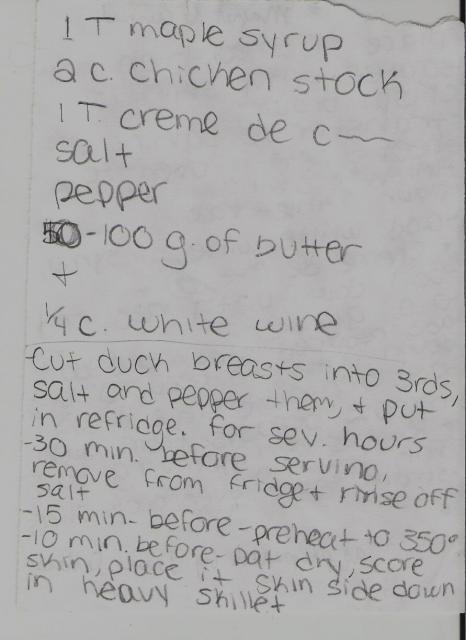 1 T maple syrup
2 c. chicken stock
1 T. creme de c
salt
pepper
50-100 g. of butter
+
1/4 c. white wine
-Cut duck breasts into 3rds,
salt and pepper them, + put
in refridge. for sev. hours
-30 min. before serving,
remove from fridge + rinse off
salt
-15 min. before - preheat to 350°
-10 min. before - pat dry, score
skin, place it skin side down
in heavy skillet